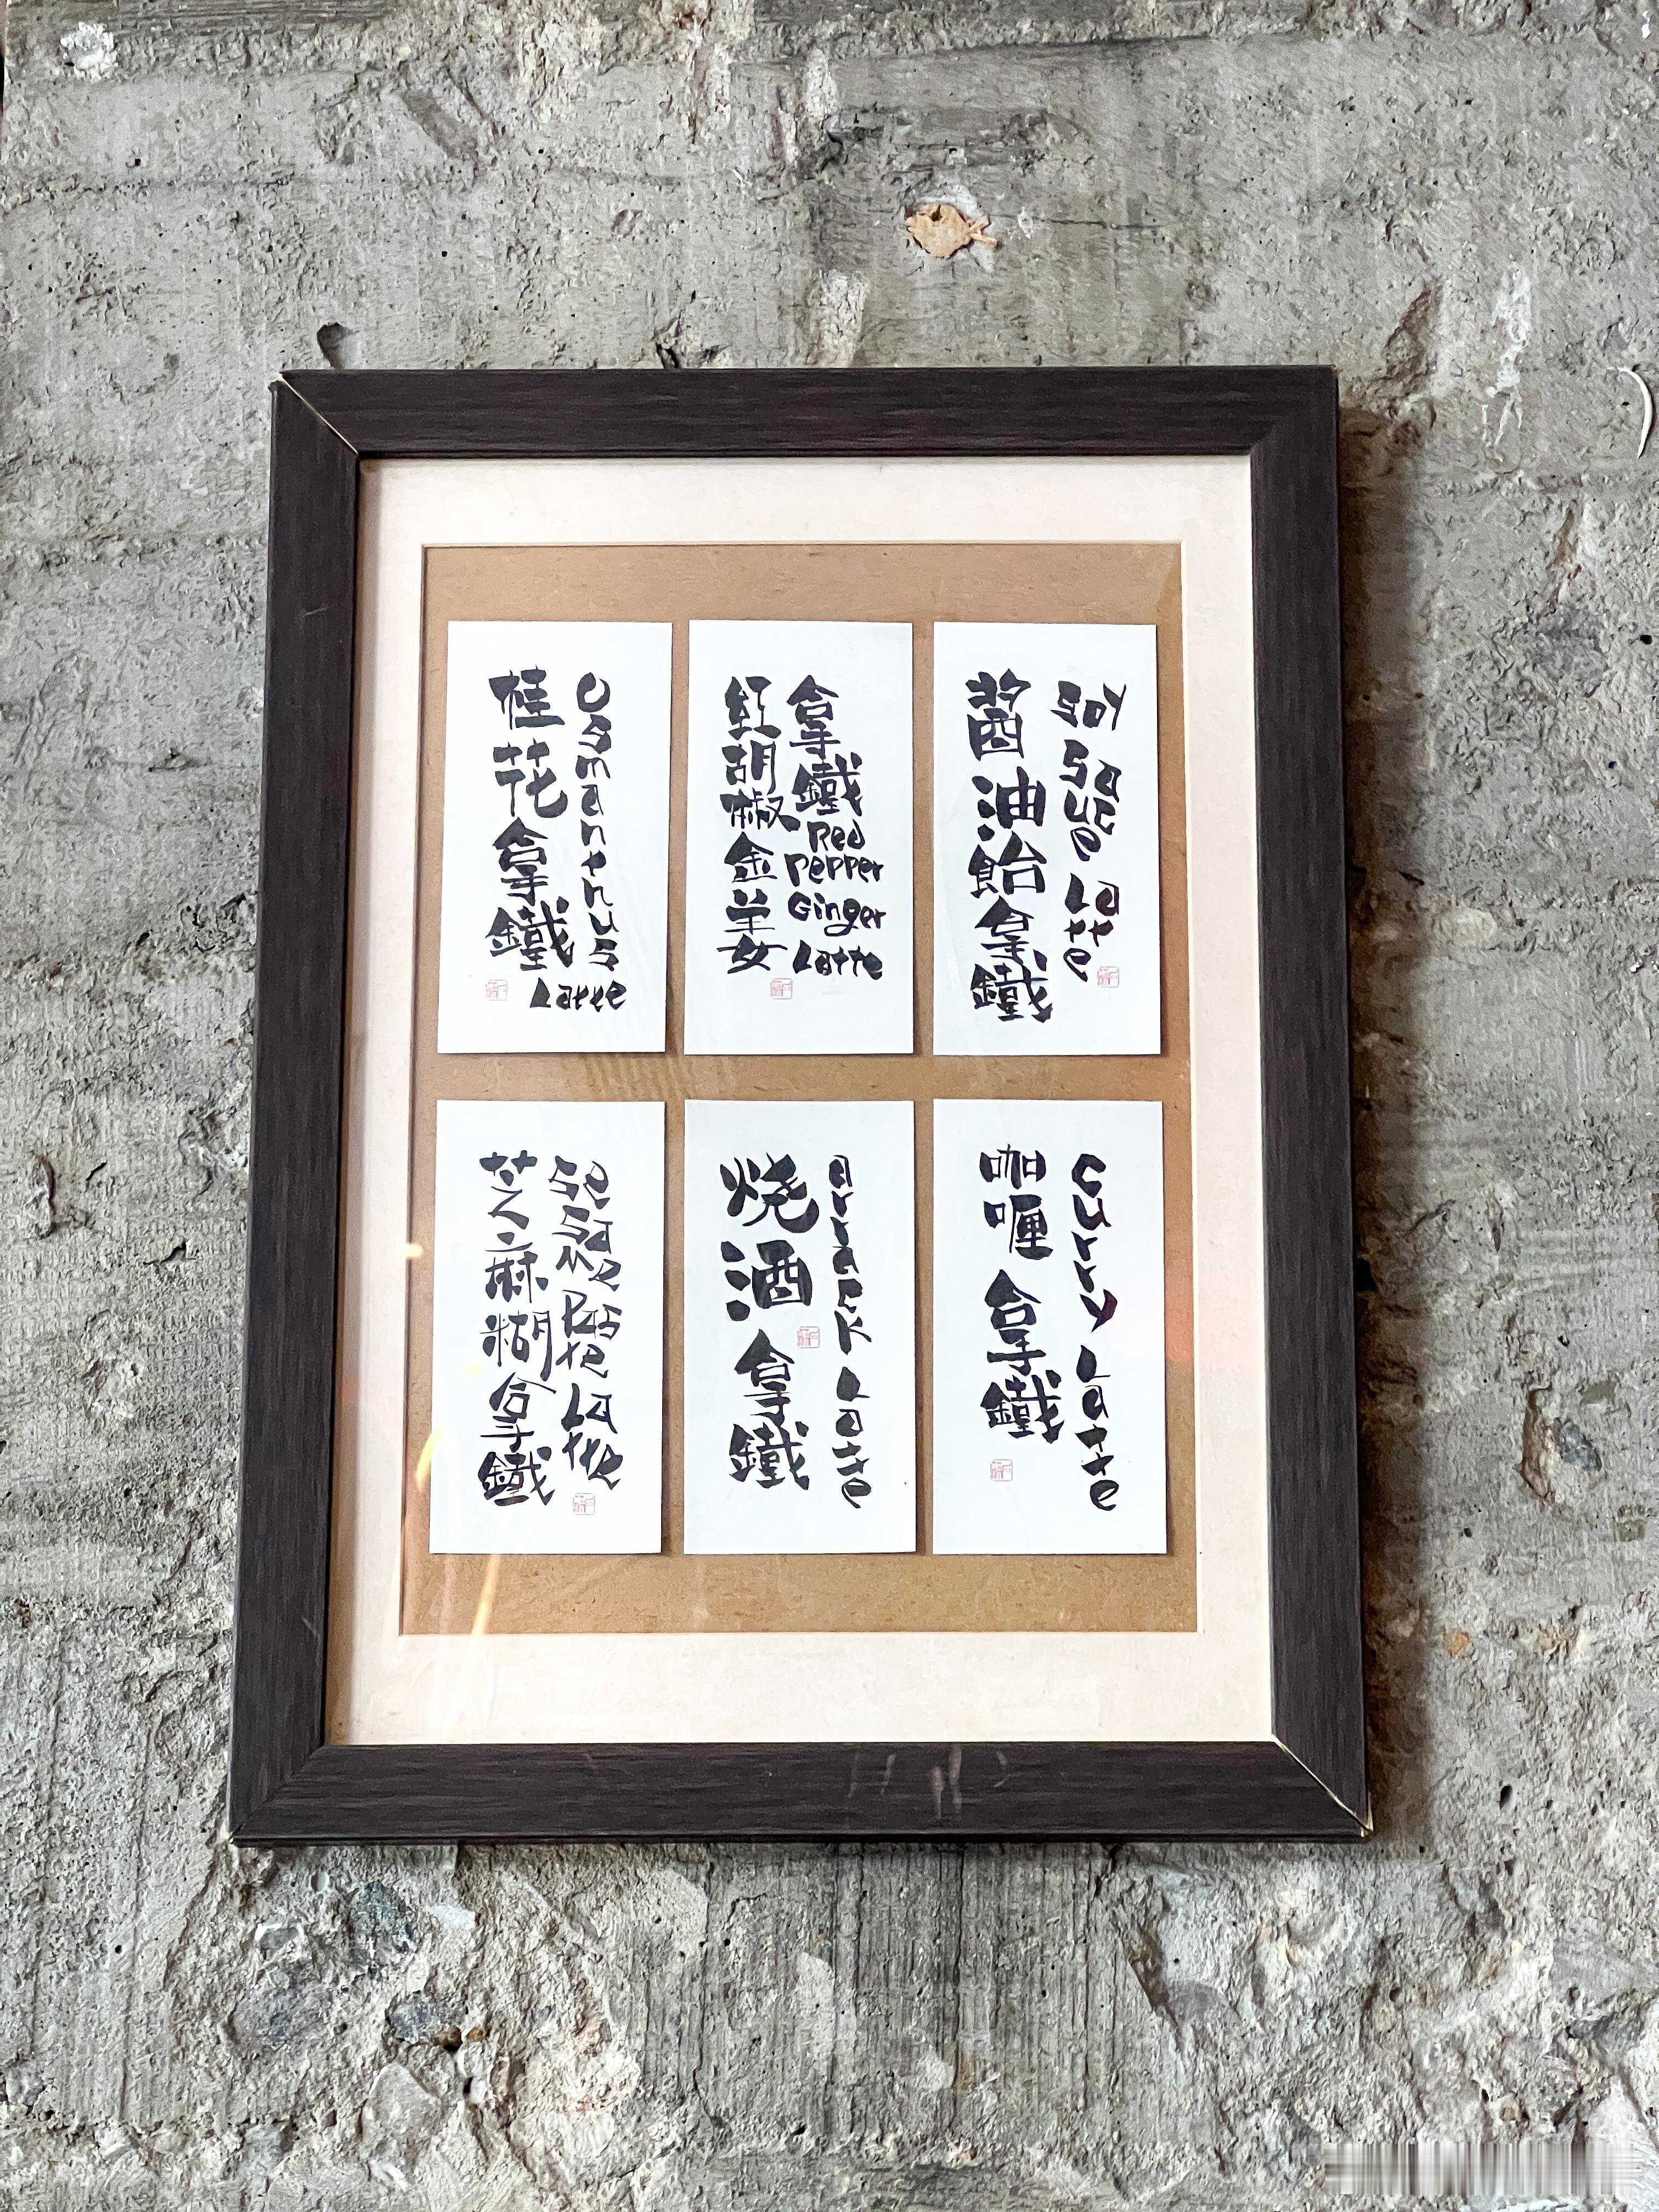 桂花拿鐵
Osmanthus
Latte
紅胡椒金姜
拿鐵
Red
Pepper
Ginger
Latte
醬油飴拿鐵
Soy Sauce Latte
芝麻糊拿鐵
Sesame Paste Latte
烧酒拿鐵
Arrack Latte
咖喱拿鐵
Curry Latte